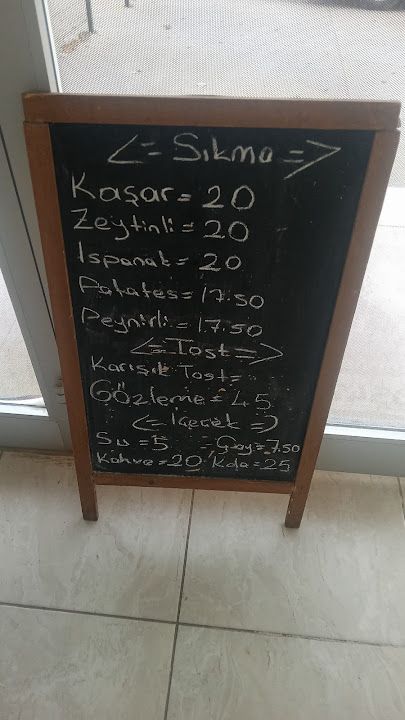 <= Sıkma =>
Kaşar = 20
Zeytinli = 20
Ispanak = 20
Patates = 17.50
Peynirli = 17.50
<= Tost =>
Karışık Tost =
Gözleme = 45
<= İçecek =>
Su = 5 - Çay = 7.50
Kahve = 20 Kola = 25